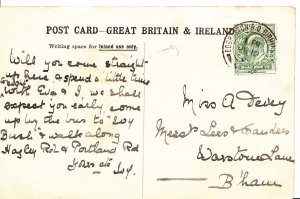 POST CARD—GREAT BRITAIN & IRELAND
Writing space for Inland use only.
Will you come straight
up here & spend a little time
with Eva & I, we shall
expect you early come
up by the bus to "Ivy
Bush" & walk along
Hagley Rd & Portland Rd
Yours etc
Ivy.
Miss A Devey
Messrs Lees & Sanders
Warstone Lane
B'ham